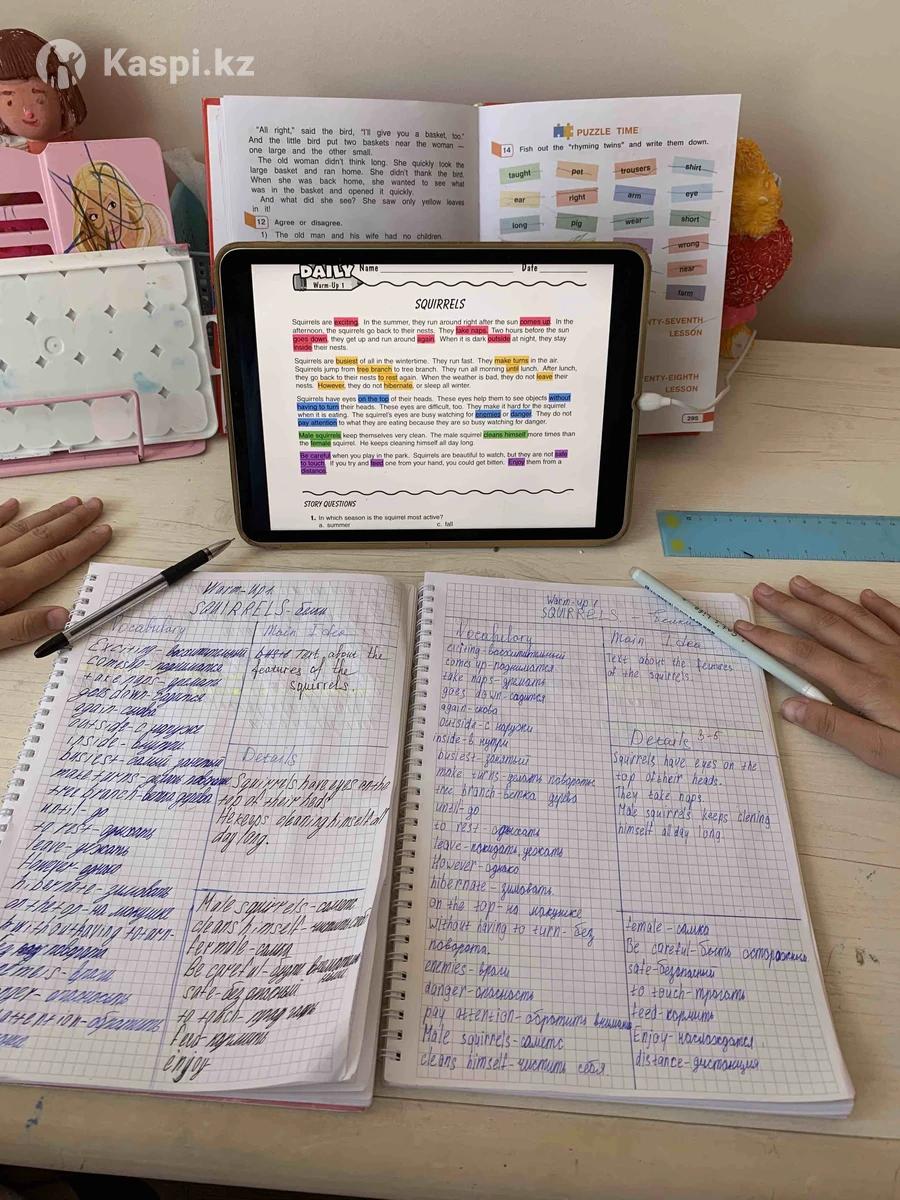 Kaspi.kz
"All right," said the bird, "I'll give you a basket, too."
And the little bird put two baskets near the woman —
one large and the other small.
The old woman didn't think long. She quickly took the
large basket and ran home. She didn't thank the bird.
When she was back home, she wanted to see what
was in the basket and opened it quickly.
And what did she see? She saw only yellow leaves
in it!
12 Agree or disagree.
1) The old man and his wife had no children.
PUZZLE TIME
14 Fish out the "rhyming twins" and write them down.
taught pet trousers shirt
ear right arm eye
long pig wear short
wrong
near
farm
NTY-SEVENTH
LESSON
ENTY-EIGHTH
LESSON
295
DAILY
Warm-Up 1
Name Date
SQUIRRELS
Squirrels are exciting. In the summer, they run around right after the sun comes up. In the
afternoon, the squirrels go back to their nests. They take naps. Two hours before the sun
goes down, they get up and run around again. When it is dark outside at night, they stay
inside their nests.
Squirrels are busiest of all in the wintertime. They run fast. They make turns in the air.
Squirrels jump from tree branch to tree branch. They run all morning until lunch. After lunch,
they go back to their nests to rest again. When the weather is bad, they do not leave their
nests. However, they do not hibernate, or sleep all winter.
Squirrels have eyes on the top of their heads. These eyes help them to see objects without
having to turn their heads. These eyes are difficult, too. They make it hard for the squirrel
when it is eating. The squirrel's eyes are busy watching for enemies or danger. They do not
pay attention to what they are eating because they are so busy watching for danger.
Male squirrels keep themselves very clean. The male squirrel cleans himself more times than
the female squirrel. He keeps cleaning himself all day long.
Be careful when you play in the park. Squirrels are beautiful to watch, but they are not safe
to touch. If you try and feed one from your hand, you could get bitten. Enjoy them from a
distance.
STORY QUESTIONS
1. In which season is the squirrel most active?
a. summer c. fall
Warm-up 1
SQUIRRELS - белки
Vocabulary
Exciting -
comes up - поднимается
take naps -
goes down - садится
again - снова
outside - с наружи
inside - внутри
busiest - самый занятый
make turns -
tree branch - ветка дерева
until - до
to rest -
leave - уезжать
However - однако
hibernate - зимовать
on the top - на макушке
without having to turn -
поворота
enemies - враги
опасность
обратить
Main Idea
text about the
features of the
squirrels.
Details
Squirrels have eyes on the
top of their heads
He keeps cleaning himself all
day long.
Male squirrels - самец
cleans himself -
female - самка
Be careful -
safe - безопасный
to touch -
кормить
enjoy
Warm-up 1
SQUIRRELS -
Vocabulary
exciting -
comes up - поднимается
take naps -
goes down - садится
again - снова
outside - с наружи
inside - в нутри
busiest - занятый
make turns - делать повороты
tree branch - ветка дерева
until - до
to rest -
leave - покидать, уезжать
However - однако
hibernate - зимовать
on the top - на макушке
without having to turn - без
поворота.
enemies - враги
danger - опасность
pay attention - обратить внимание
Male squirrels - самец
cleans himself - чистить себя
Main Idea
Text about the
of the squirrels.
Details 3-5
Squirrels have eyes on the
top of their heads.
They take naps.
Male squirrels keeps clening
himself all day long.
female - самка
Be careful - быть
safe - безопасный
to touch - трогать
feed - кормить
Enjoy - наслаждатся
distance - дистанция